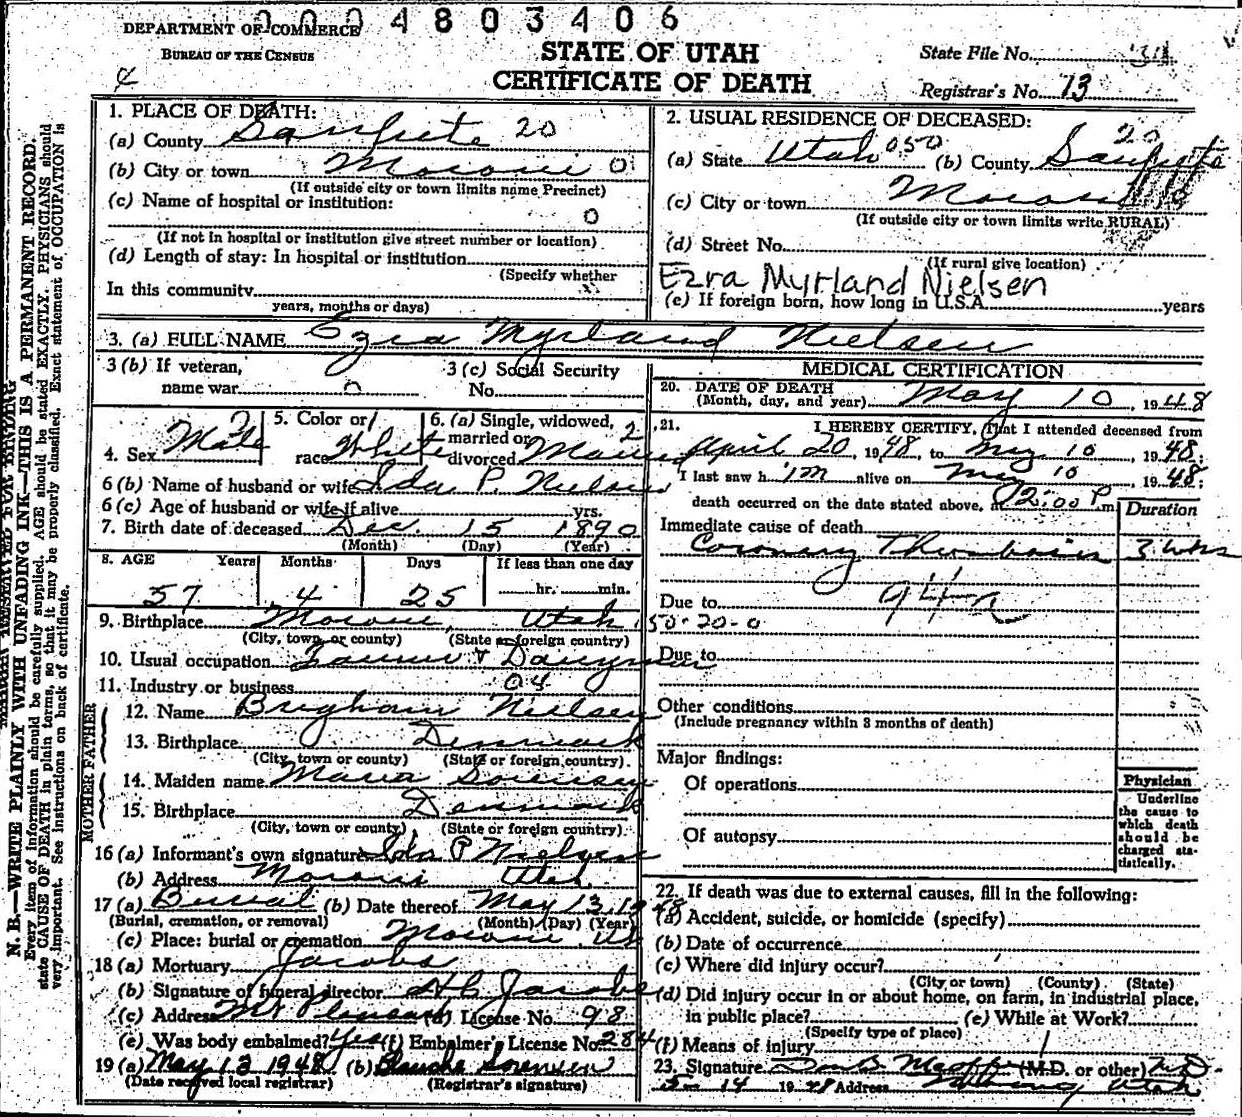 0004803406
DEPARTMENT OF COMMERCE
BUREAU OF THE CENSUS
STATE OF UTAH
CERTIFICATE OF DEATH
State File No.
Registrar's No. 13
N. B.—WRITE PLAINLY WITH UNFADING INK—THIS IS A PERMANENT RECORD.
Every item of information should be carefully supplied. AGE should be stated EXACTLY. PHYSICIANS should
state CAUSE OF DEATH in plain terms, so that it may be properly classified. Exact statement of OCCUPATION is
very important. See instructions on back of certificate.
1. PLACE OF DEATH:
(a) County Sanpete 20
(b) City or town Moroni 0
(If outside city or town limits name Precinct)
(c) Name of hospital or institution:
0
(If not in hospital or institution give street number or location)
(d) Length of stay: In hospital or institution
(Specify whether
In this community
years, months or days)
2. USUAL RESIDENCE OF DECEASED:
(a) State Utah 050 (b) County Sanpete 20
(c) City or town Moroni
(If outside city or town limits write RURAL)
(d) Street No.
(If rural give location)
Ezra Myrland Nielsen
(e) If foreign born, how long in U.S.A. years
3. (a) FULL NAME Ezra Myrland Nielsen
3 (b) If veteran,
name war 0
3 (c) Social Security
No.
4. Sex Male
5. Color or
race White
6. (a) Single, widowed,
married or
divorced Married
2
6 (b) Name of husband or wife Ida P. Nielsen
6 (c) Age of husband or wife if alive yrs.
7. Birth date of deceased Dec. 15 1890
(Month) (Day) (Year)
8. AGE Years Months Days If less than one day
57 4 25 hr. min.
9. Birthplace Moroni, Utah
(City, town or county) (State or foreign country)
50-20-0
10. Usual occupation Farmer & Dairyman
11. Industry or business 04
FATHER
12. Name Brigham Nielsen
13. Birthplace Denmark
(City, town or county) (State or foreign country)
MOTHER
14. Maiden name Maria Sorensen
15. Birthplace Denmark
(City, town or county) (State or foreign country)
16 (a) Informant's own signature Ida P Nielsen
(b) Address Moroni Utah
17 (a) Burial (b) Date thereof May 13, 1948
(Burial, cremation, or removal) (Month) (Day) (Year)
(c) Place: burial or cremation Moroni, Ut
18 (a) Mortuary Jacobs
(b) Signature of funeral director Jacobs
(c) Address Mt Pleasant (d) License No. 98
(e) Was body embalmed? Yes (f) Embalmer's License No. 284
19 (a) May 13 1948 (b) Blanche Sorensen
(Date received local registrar) (Registrar's signature)
MEDICAL CERTIFICATION
20. DATE OF DEATH
(Month, day, and year) May 10, 1948
21. I HEREBY CERTIFY, That I attended deceased from
April 20, 1948, to May 10, 1948;
I last saw h im alive on May 10, 1948;
death occurred on the date stated above, at 12:00 P.m.
Duration
Immediate cause of death
Coronary Thrombosis 3 wks
94a
Due to
Due to
Other conditions
(Include pregnancy within 3 months of death)
Major findings:
Of operations
Of autopsy
Physician
Underline
the cause to
which death
should be
charged sta-
tistically.
22. If death was due to external causes, fill in the following:
(a) Accident, suicide, or homicide (specify)
(b) Date of occurrence
(c) Where did injury occur?
(City or town) (County) (State)
(d) Did injury occur in or about home, on farm, in industrial place,
in public place? (e) While at Work?
(Specify type of place)
(f) Means of injury
23. Signature (M.D. or other) M.D.
5-14 1948 Address Utah